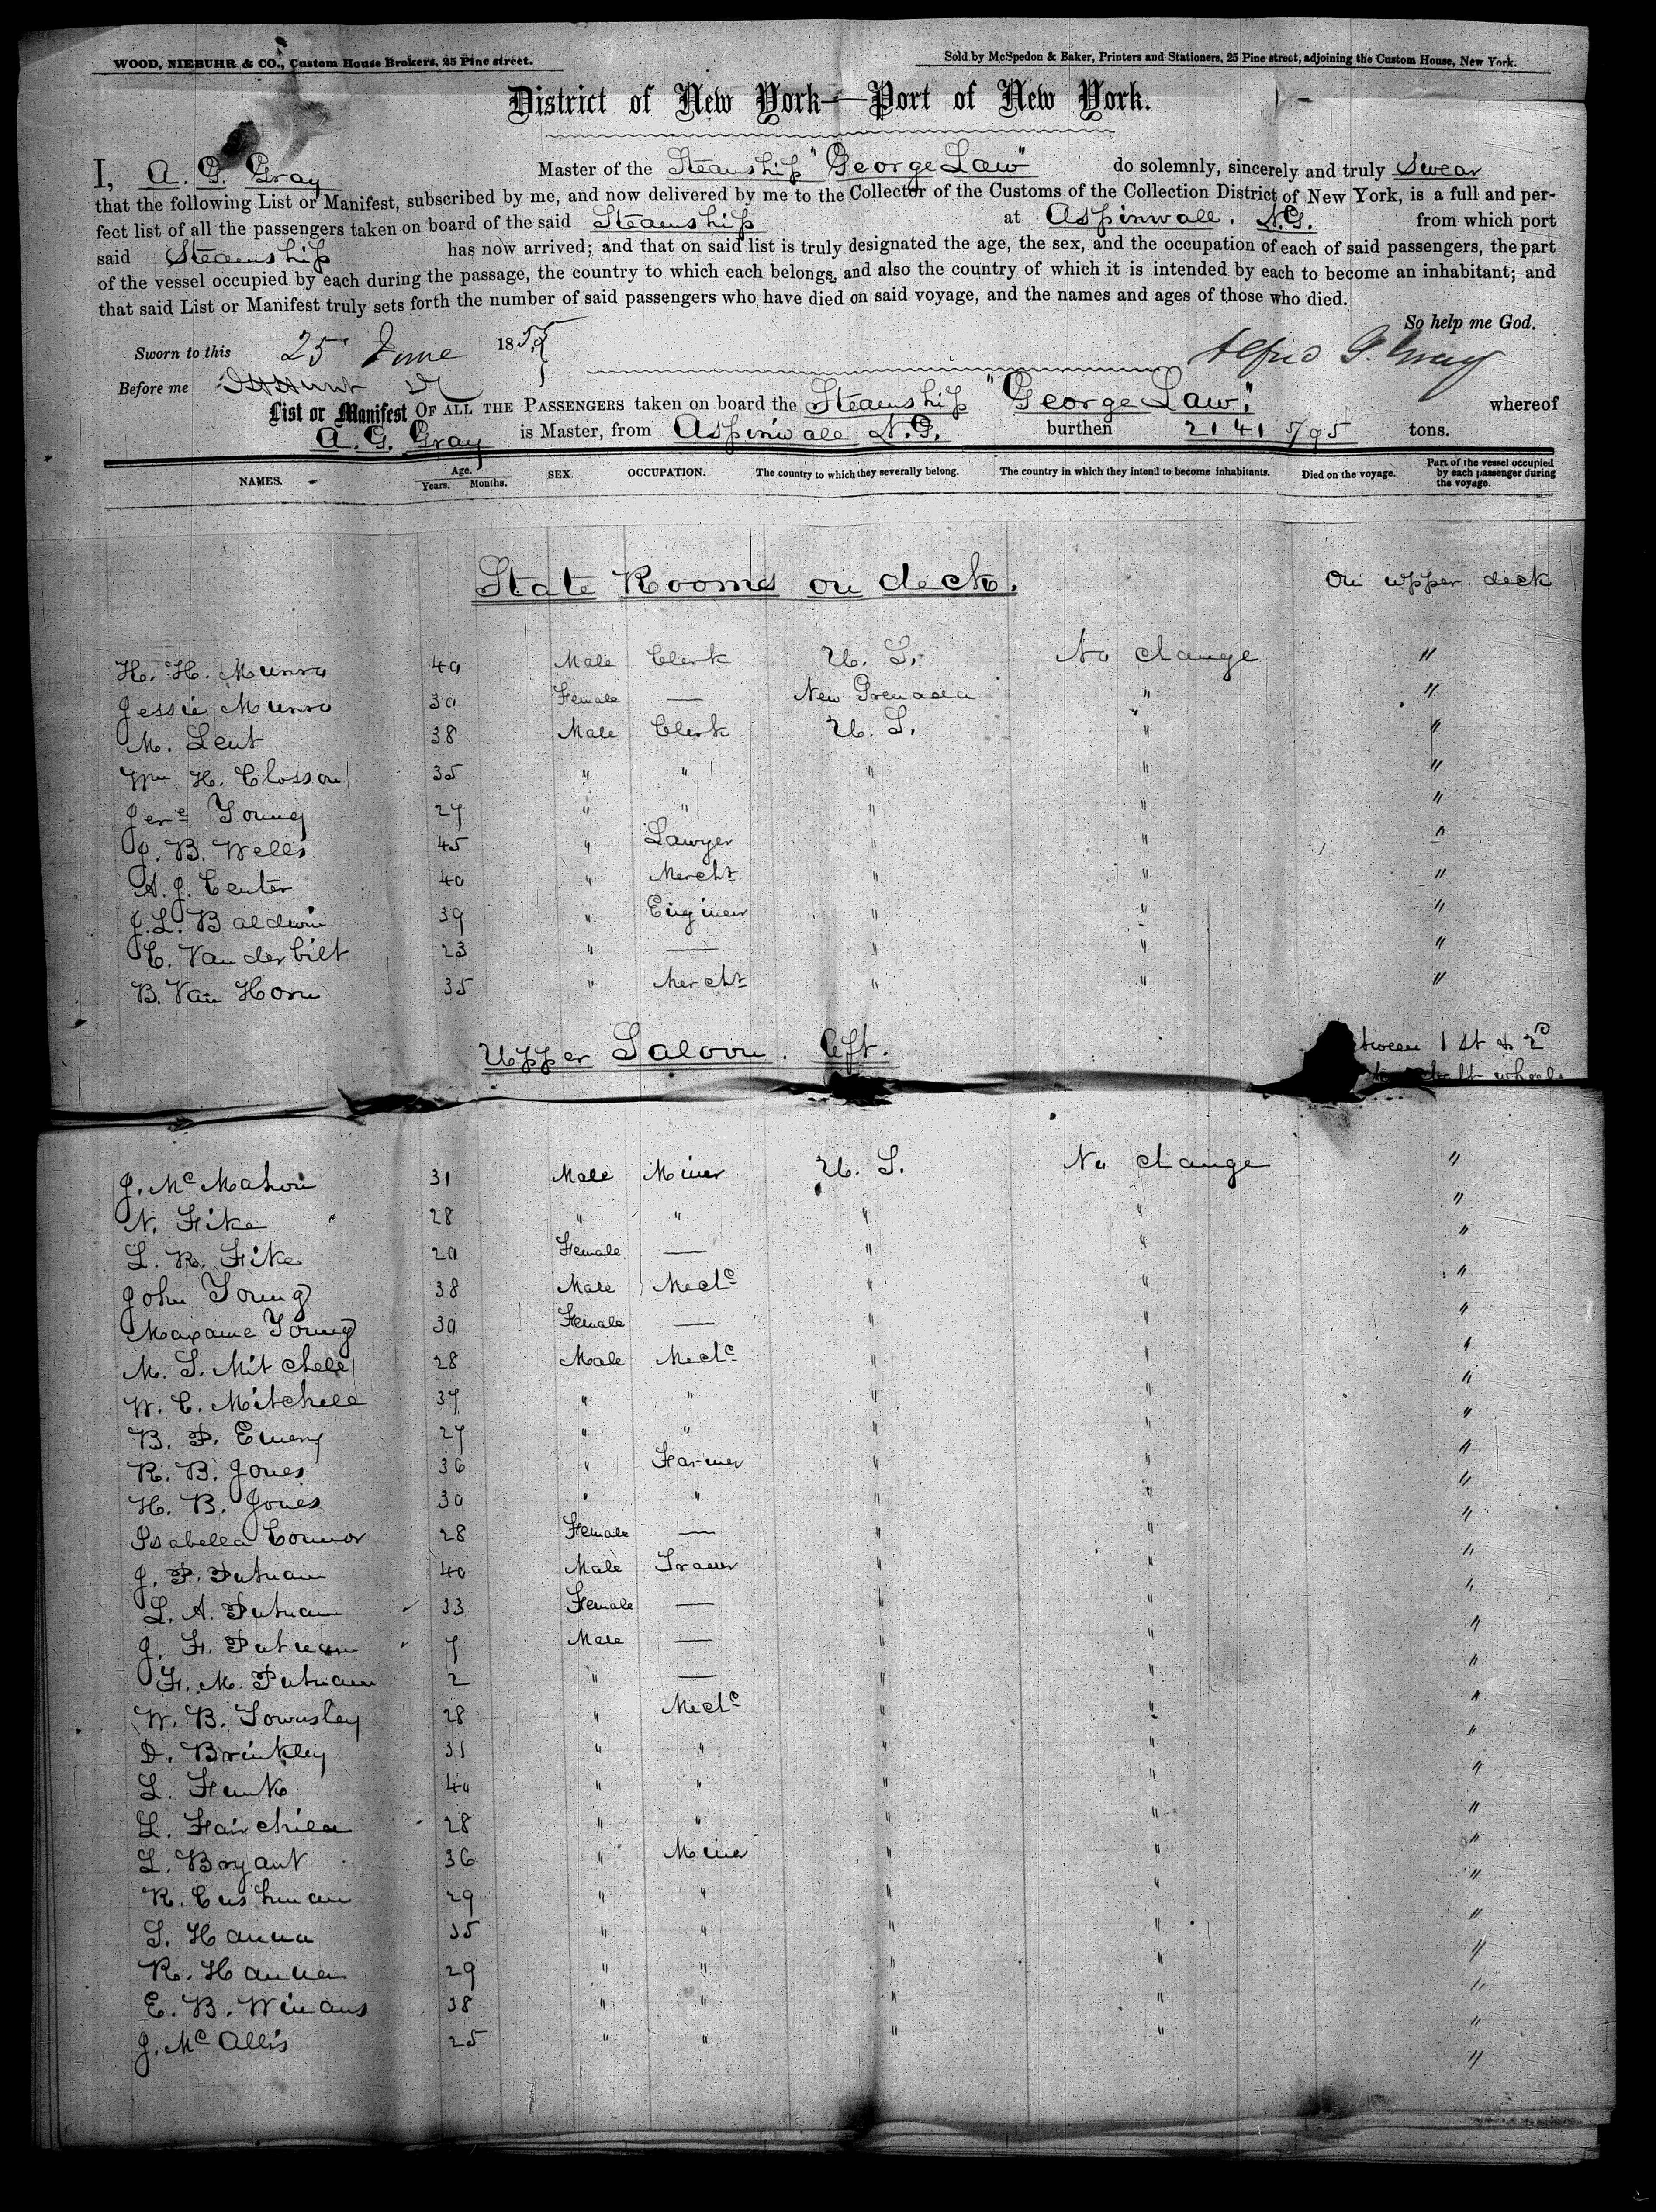 WOOD, NIEBUHR & CO., Custom House Brokers, 25 Pine street.
Sold by McSpedon & Baker, Printers and Stationers, 25 Pine street, adjoining the Custom House, New York.
District of New York—Port of New York.
I, A. G. Gray Master of the Steamship "George Law" do solemnly, sincerely and truly Swear
that the following List or Manifest, subscribed by me, and now delivered by me to the Collector of the Customs of the Collection District of New York, is a full and per-
fect list of all the passengers taken on board of the said Steamship at Aspinwall. N.G. from which port
said Steamship has now arrived; and that on said list is truly designated the age, the sex, and the occupation of each of said passengers, the part
of the vessel occupied by each during the passage, the country to which each belongs, and also the country of which it is intended by each to become an inhabitant; and
that said List or Manifest truly sets forth the number of said passengers who have died on said voyage, and the names and ages of those who died.
So help me God.
Sworn to this 25 June 1855 Alfred G. Gray
Before me
List or Manifest OF ALL THE PASSENGERS taken on board the Steamship "George Law", whereof
A. G. Gray is Master, from Aspinwall N.G. burthen 2141 5/95 tons.
NAMES. Age. Years. Months. SEX. OCCUPATION. The country to which they severally belong. The country in which they intend to become inhabitants. Died on the voyage. Part of the vessel occupied by each passenger during the voyage.
State Rooms on deck. On upper deck
H. H. Munro 40 Male Clerk U. S. No change "
Jessie Munro 30 Female — New Grenada " "
M. Lent 38 Male Clerk U. S. " "
Wm H. Closson 35 " " " " "
Jere Young 27 " " " " "
J. B. Wells 45 " Lawyer " " "
A. J. Center 40 " Mercht " " "
J. L. Baldwin 39 " Engineer " " "
C. Vanderbilt 23 " — " " "
B. Van Horn 35 " Mercht " " "
Upper Saloon. Aft. tween 1st & 2d
wheels
J. McMahon 31 Male Miner U. S. No change "
N. Fike 28 " " " " "
L. R. Fike 20 Female — " " "
John Young 38 Male Mechc " " "
Maxame Young 30 Female — " " "
M. S. Mitchell 28 Male Mechc " " "
W. C. Mitchell 37 " " " " "
B. P. Emery 27 " " " " "
R. B. Jones 36 " Farmer " " "
H. B. Jones 30 " " " " "
Isabella Connor 28 Female — " " "
J. P. Putnam 40 Male Trader " " "
L. A. Putnam 33 Female — " " "
J. F. Putnam 7 Male — " " "
F. M. Putnam 2 " — " " "
W. B. Townsley 28 " Mechc " " "
D. Brinkley 31 " " " " "
L. Funk 40 " " " " "
L. Fairchild 28 " " " " "
L. Bryant 36 " Miner " " "
R. Cushman 29 " " " " "
S. Hanna 35 " " " " "
R. Hanna 29 " " " " "
E. B. Winans 38 " " " " "
J. McAllis 25 " " " " "